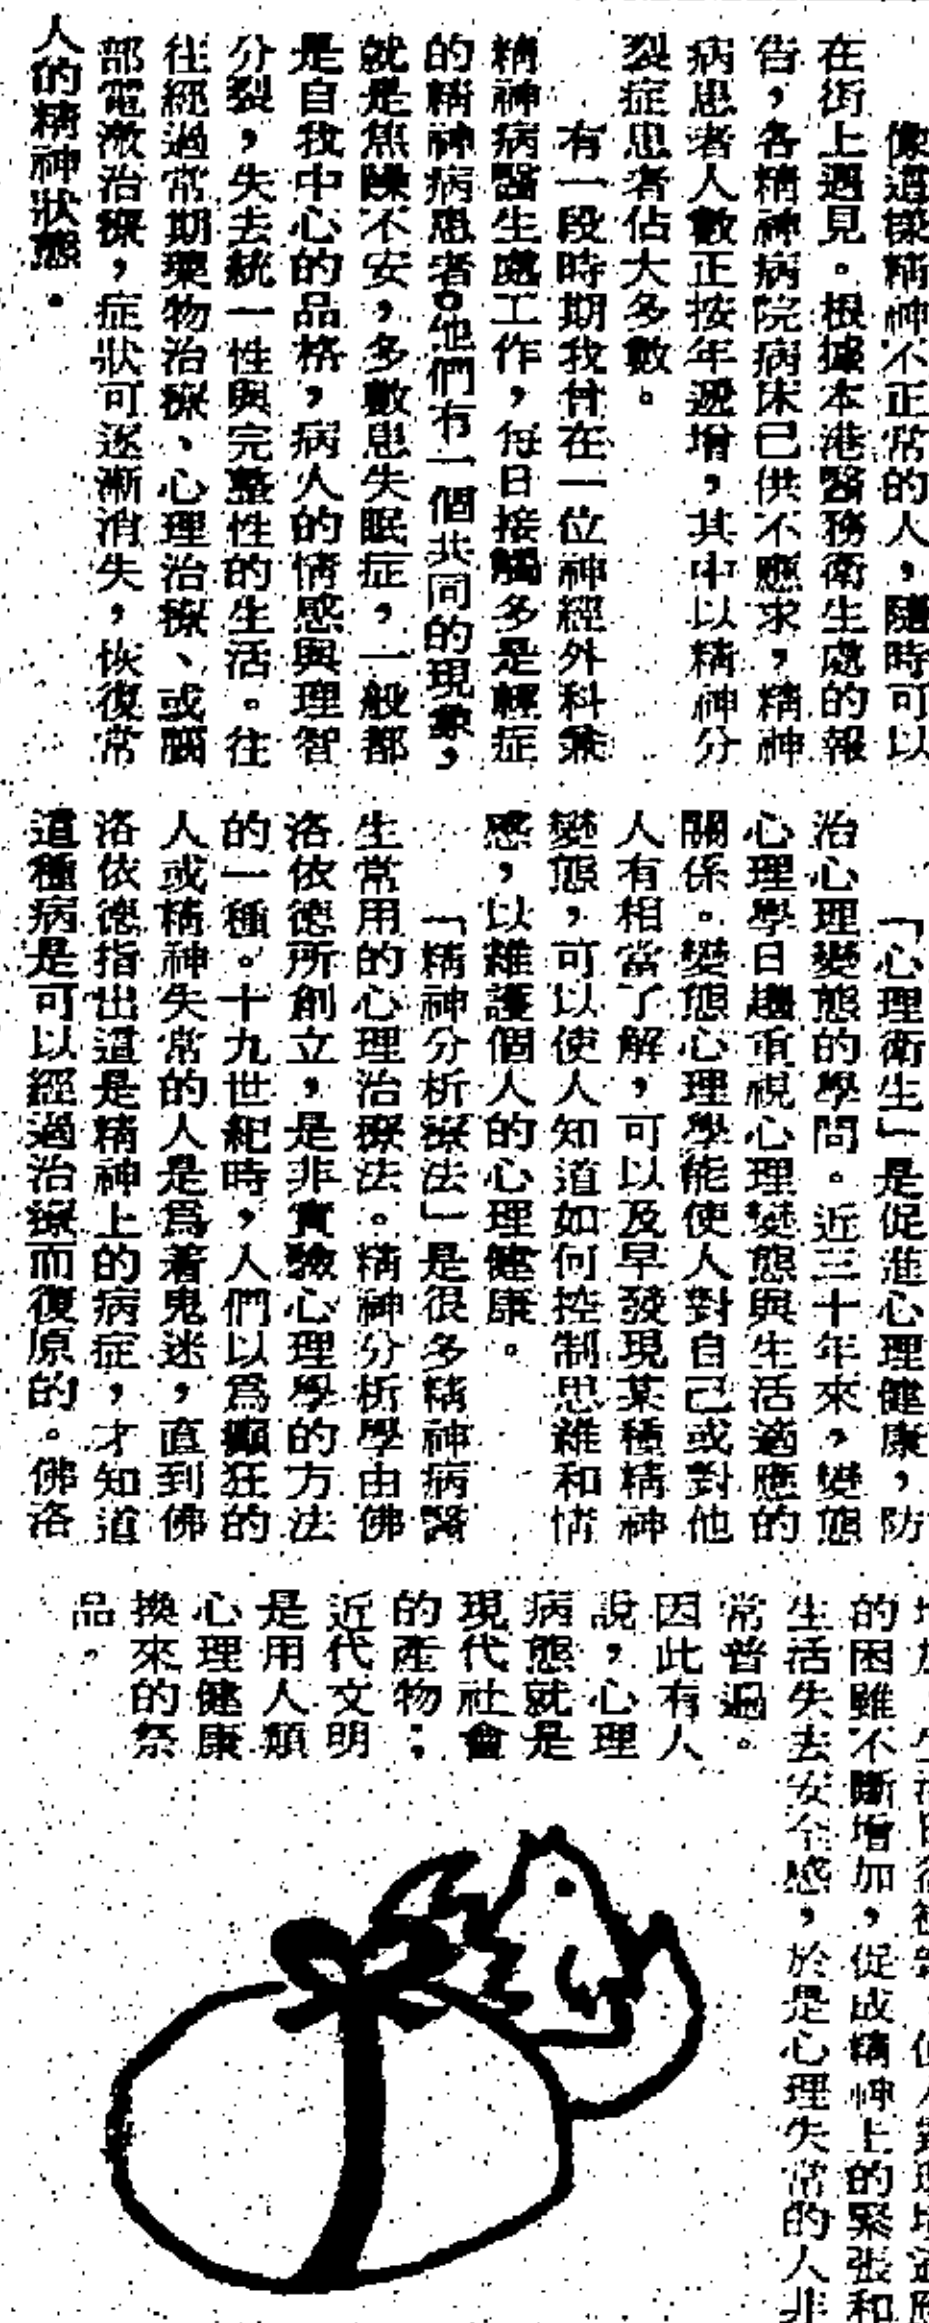 像這樣精神不正常的人，隨時可以
在街上遇見。根據本港醫務衛生處的報
告，各精神病院病床已供不應求，精神
病患者人數正按年遞增，其中以精神分
裂症患者佔大多數。
有一段時期我曾在一位神經外科兼
精神病醫生處工作，每日接觸多是輕症
的精神病患者。他們有一個共同的現象，
就是焦躁不安，多數患失眠症，一般都
是自我中心的品格，病人的情感與理智
分裂，失去統一性與完整性的生活。往
往經過常期藥物治療、心理治療、或腦
部電激治療，症狀可逐漸消失，恢復常
人的精神狀態。
「心理衛生」是促進心理健康，防
治心理變態的學問。近三十年來，變態
心理學日趨重視心理變態與生活適應的
關係。變態心理學能使人對自己或對他
人有相當了解，可以及早發現某種精神
變態，可以使人知道如何控制思維和情
感，以維護個人的心理健康。
「精神分析療法」是很多精神病醫
生常用的心理治療法。精神分析學由佛
洛依德所創立，是非實驗心理學的方法
的一種。十九世紀時，人們以爲癲狂的
人或精神失常的人是爲着鬼迷，直到佛
洛依德指出這是精神上的病症，才知道
這種病是可以經過治療而復原的。佛洛
的困難不斷增加，促成精神上的緊張和
生活失去安全感，於是心理失常的人非
常普遍。
因此有人
說，心理
病態就是
現代社會
的產物；
近代文明
是用人類
心理健康
換來的祭
品。